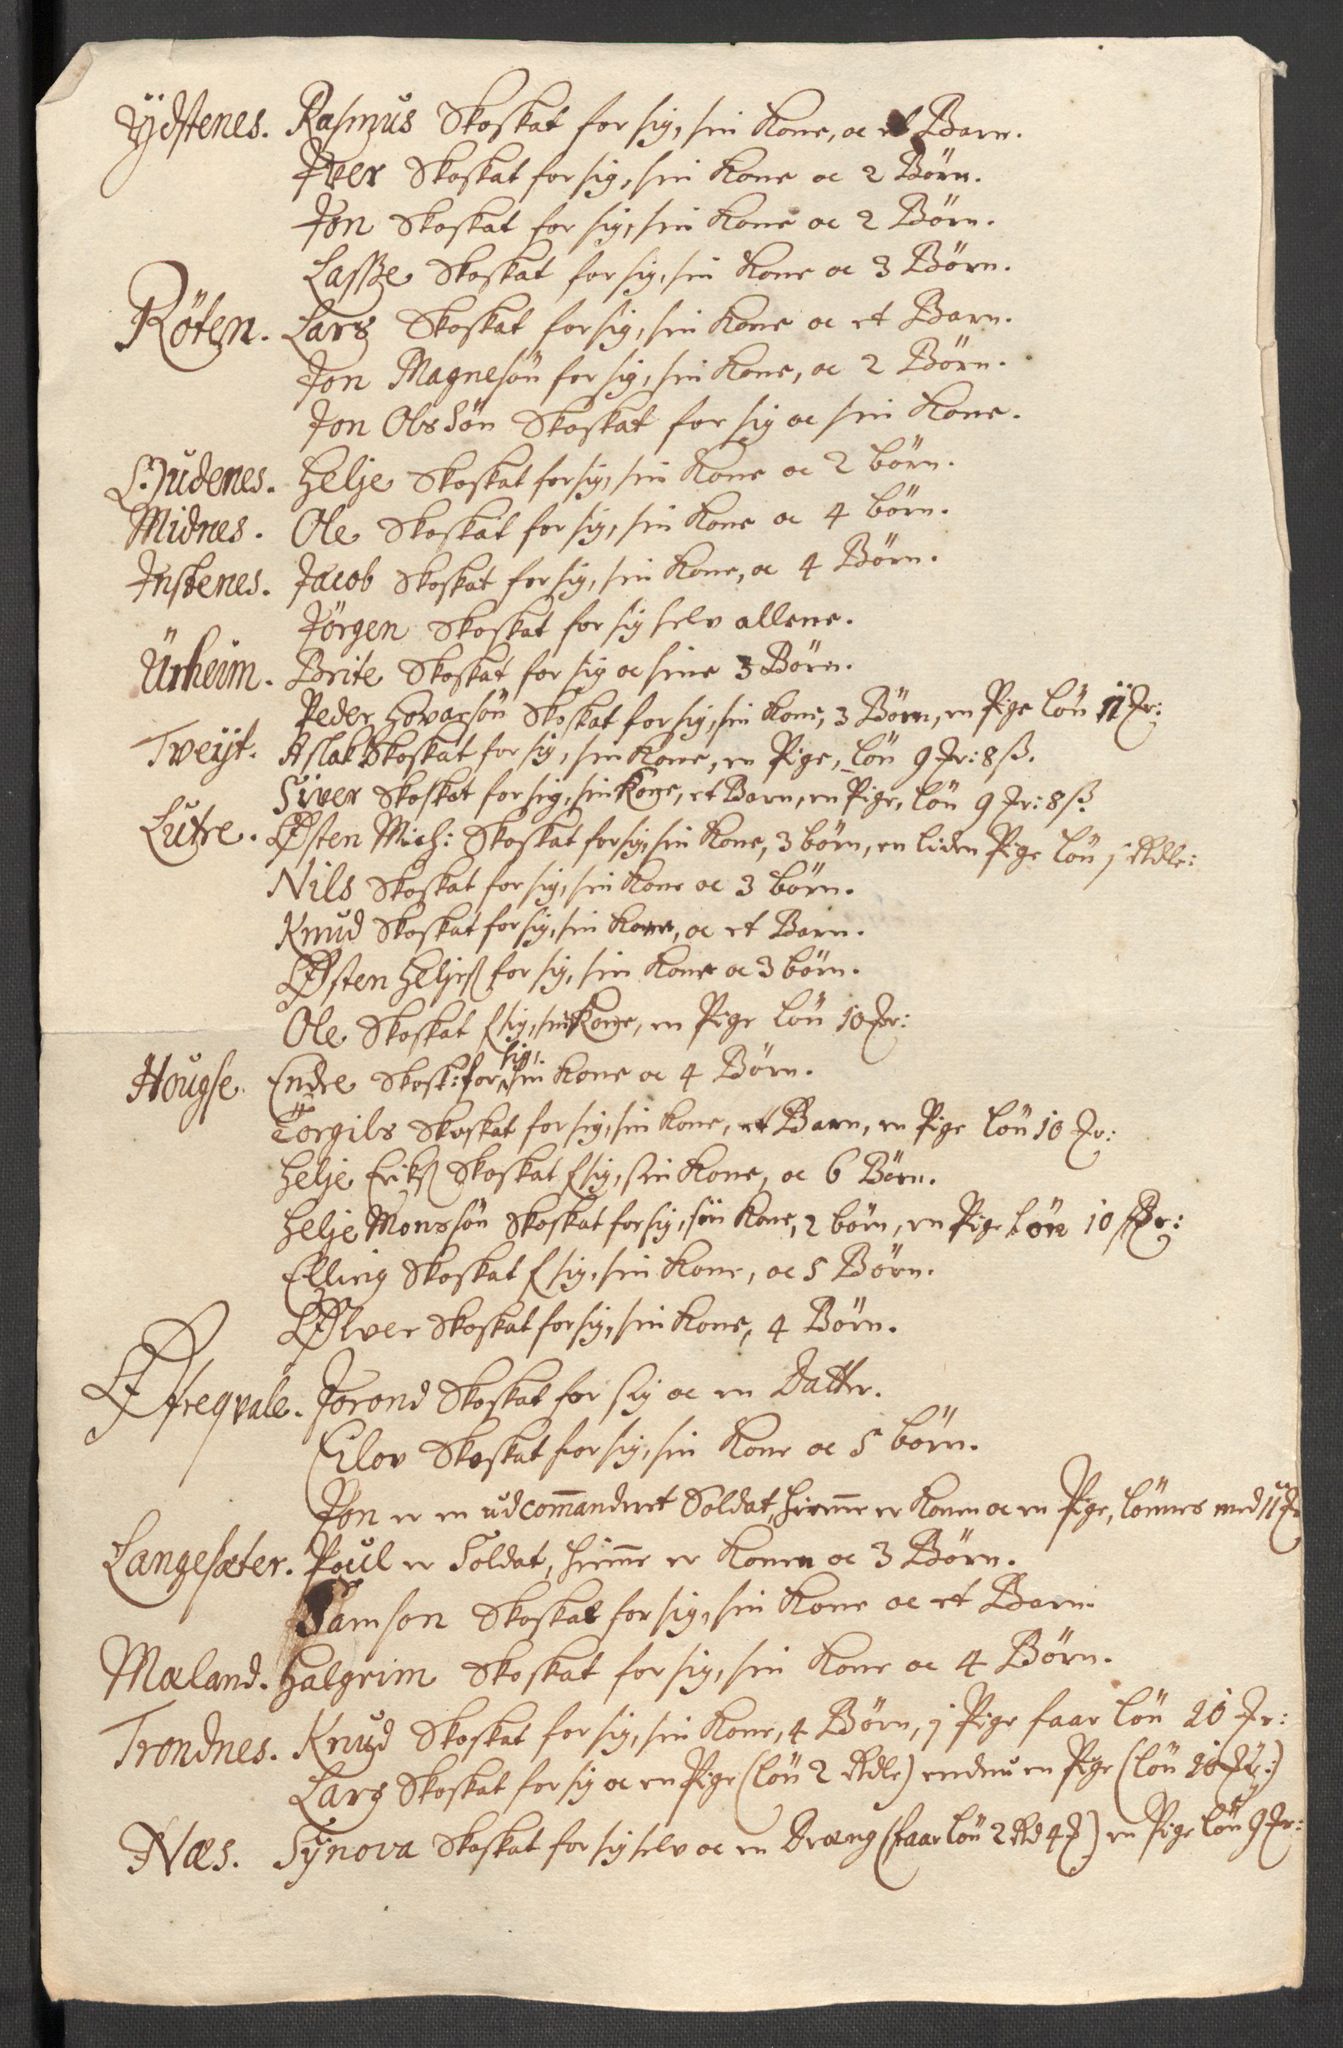 Ÿdstenes. Rasmus Skoskat for sig, sin Kone, oc et Barn.
Iver Skoskat for sig, sin Kone oc 2 Börn.
Jon Skoskat for sig, sin Kone oc 2 Börn.
Lasse Skoskat for sig, sin Kone oc 3 Börn.
Röten. Lars Skoskat for sig, sin Kone oc et Barn.
Jon Magnesön for sig, sin Kone, oc 2 Börn.
Jon Olssön Skoskat for sig oc sin Kone.
Liudenes. Helje Skoskat for sig, sin Kone oc 2 börn.
Midnes. Ole Skoskat for sig, sin Kone oc 4 börn.
Instenes. Jacob Skoskat for sig, sin Kone, oc 4 Börn.
Jörgen Skoskat for sig selv allene.
Urheim. Brite Skoskat for sig oc sine 3 Börn.
Peder Hovarsön Skoskat for sig, sin Kone, 3 Börn, en Pige lön 11 Jr:
Tveÿt. Aslak Skoskat for sig, sin Kone, en Pige, lön 9 Jr: 8 ß.
Siver Skoskat for sig, sin Kone, et Barn, en Pige, lön 9 Jr: 8 ß.
Lutre. Østen Mich: Skoskat for sig, sin Kone, 3 börn, en liden Pige lön 1 Rdle:
Nils Skoskat for sig, sin Kone oc 3 börn.
Knud Skoskat for sig, sin Kone, oc et Barn.
Østen Heljeß for sig, sin Kone oc 3 börn.
Ole Skoskat f sig, sin Kone, en Pige lön 10 Jr:
Hougse. Endre Skosk: for sig, sin Kone oc 4 Börn.
Torgils Skoskat for sig, sin Kone, et Barn, en Pige lön 10 Jr:
Helje Eriks Skoskat f sig, sin Kone, oc 6 Börn.
Helje Monssön Skoskat for sig, sin Kone, 2 börn, en Pige lön 10 Jr:
Elling Skoskat f sig, sin Kone, oc 5 Börn.
Ølver Skoskat for sig, sin Kone, 4 Börn.
Øfreqvale. Jorond Skoskat for sig oc en Datter.
Eilov Skoskat for sig, sin Kone oc 5 börn.
Jon er en udcommanderet Soldat, hiemme er Konen oc en Pige, lönnes med 11 Jr
Langesæter. Poul er Soldat, hiemme er Konen oc 3 Börn.
Samson Skoskat for sig, sin Kone oc et Barn.
Mæland. Halgrim Skoskat for sig, sin Kone oc 4 Börn.
Trondnes. Knud Skoskat for sig, sin Kone, 4 Börn, 1 Pige faar lön 10 Jr:
Lars Skoskat for sig oc en Pige (lön 2 Rdle) endnu en Pige (lön 10 Jr:)
Næs. Sÿnova Skoskat for sig selv oc en Dræng (faar lön 2 Rd 4 J) en Pige lön 9 Jr: